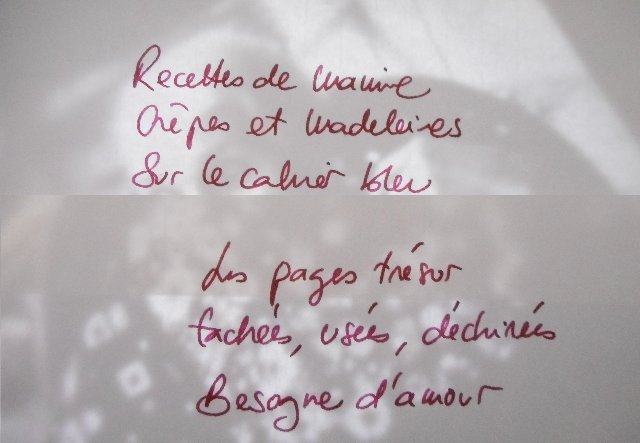 Recettes de mamie
Crêpes et madeleines
Sur le cahier bleu
Les pages trésor
tachées, usées, déchirées
Besogne d'amour